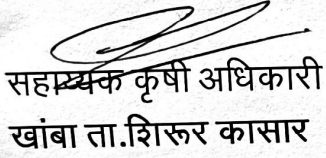 सहाय्यक कृषी अधिकारी
खांबा ता.शिरूर कासार